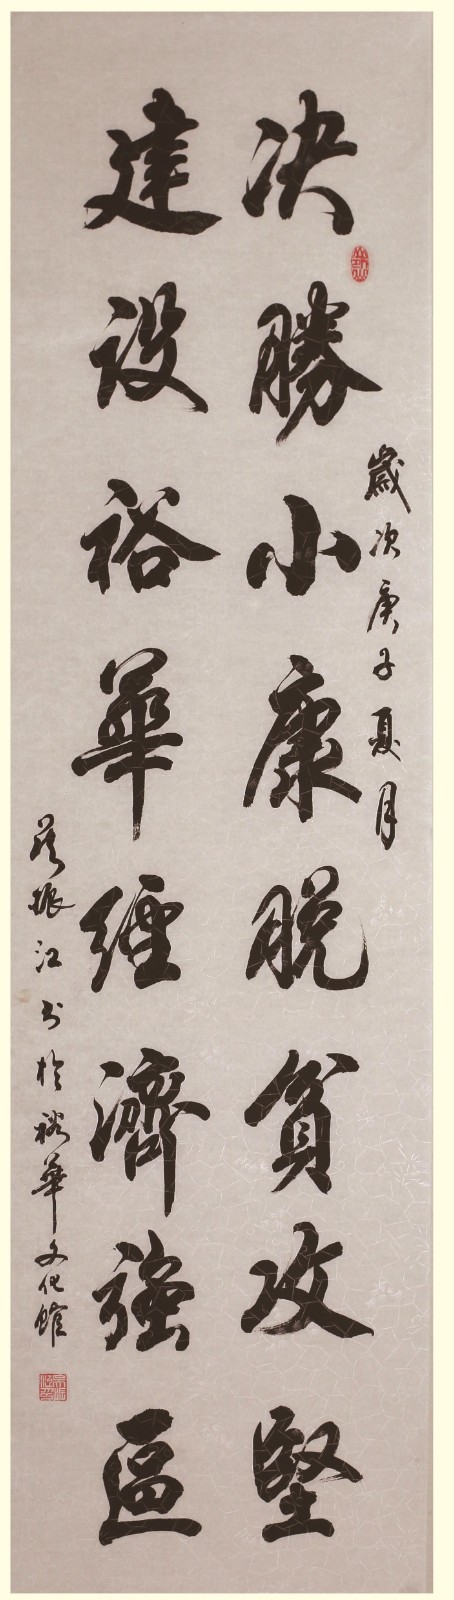 歲次庚子夏月
决勝小康脱貧攻堅
建設裕華經濟強區
振江书於裕華文化館